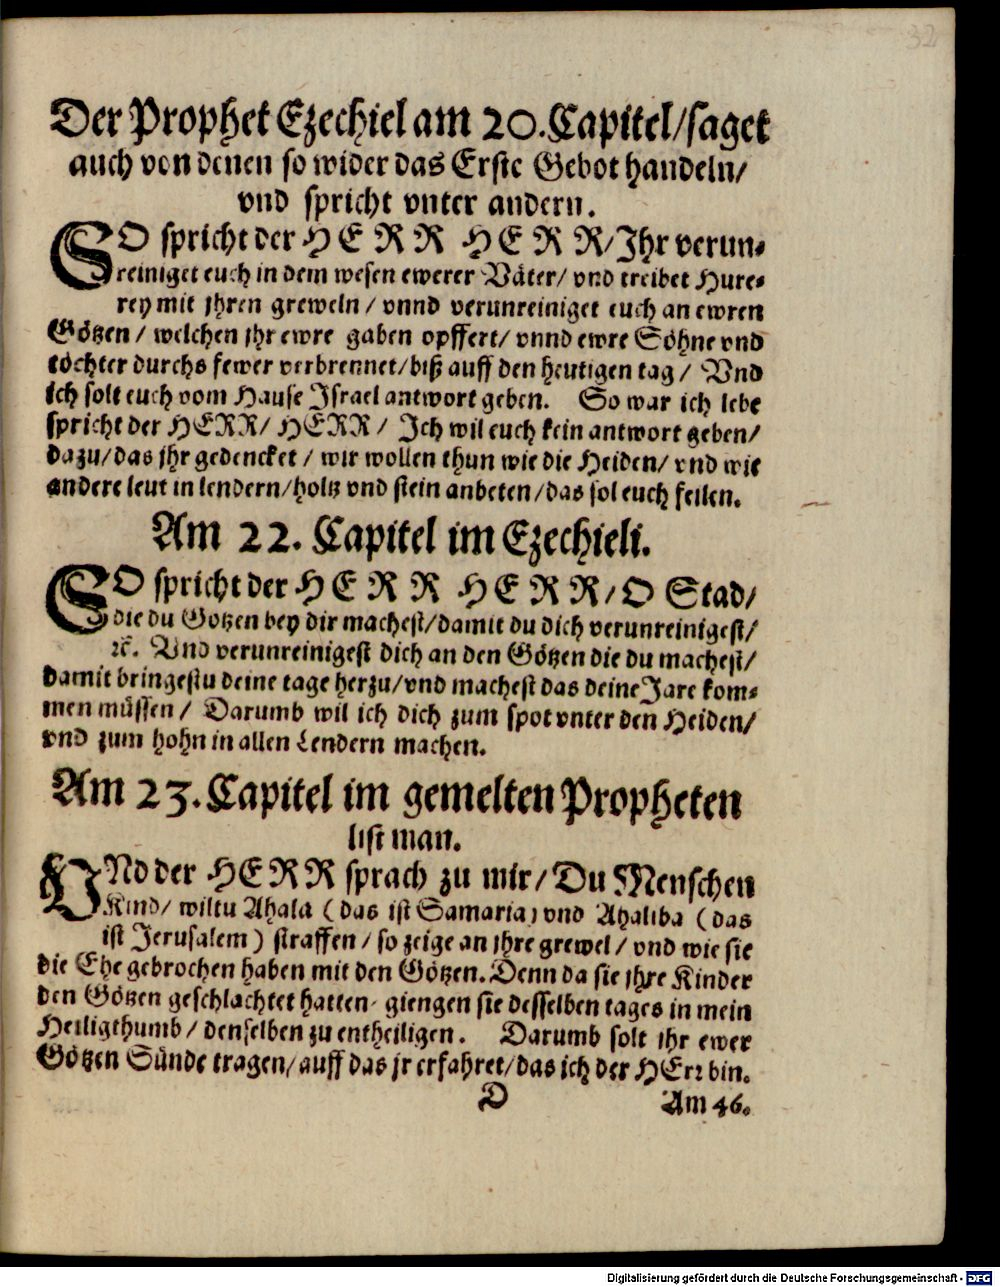 32
Der Prophet Ezechiel am 20. Capitel/ saget
auch von denen so wider das Erste Gebot handeln/
vnd spricht vnter andern.
SO spricht der HERR HERR/ Ihr verun-
reiniget euch in dem wesen ewerer Väter/ vnd treibet Hure-
rey mit jhren greweln/ vnnd verunreiniget euch an ewren
Götzen/ welchen jhr ewre gaben opffert/ vnnd ewre Söhne vnd
töchter durchs fewer verbrennet/ biß auff den heutigen tag/ Vnd
ich solt euch vom Hause Israel antwort geben. So war ich lebe
spricht der HERR/ HERR/ Ich wil euch kein antwort geben/
dazu/ das jhr gedencket/ wir wollen thun wie die Heiden/ vnd wie
andere leut in lendern/ holtz vnd stein anbeten/ das sol euch feilen.
Am 22. Capitel im Ezechieli.
SO spricht der HERR HERR/ O Stad/
die du Gotzen bey dir machest/ damit du dich verunreinigest/
ꝛc. Vnd verunreinigest dich an den Götzen die du machest/
damit bringestu deine tage herzu/ vnd machest das deine Jare kom-
men müssen/ Darumb wil ich dich zum spot vnter den Heiden/
vnd zum hohn in allen Lendern machen.
Am 23. Capitel im gemelten Propheten
list man.
VNd der HERR sprach zu mir/ Du Menschen
Kind/ wiltu Ahala (das ist Samaria) vnd Ahaliba (das
ist Jerusalem) straffen/ so zeige an jhre grewel/ vnd wie sie
die Ehe gebrochen haben mit den Götzen. Denn da sie jhre Kinder
den Götzen geschlachtet hatten, giengen sie desselben tages in mein
Heiligthumb/ denselben zu entheiligen. Darumb solt jhr ewer
Götzen Sünde tragen/ auff das jr erfahret/ das ich der HErr bin.
D Am 46.
Digitalisierung gefördert durch die Deutsche Forschungsgemeinschaft - DFG